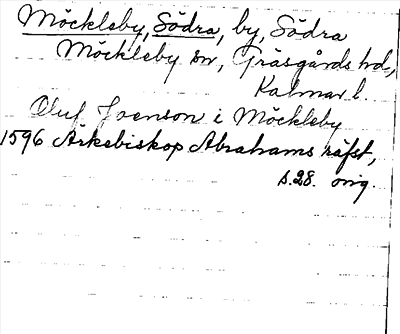 Möckleby, Södra, by, Södra
Möckleby sn, Gräsgårds hd,
Kalmar l.
Oluf Joenson i Möckleby
1596 Ärkebiskop Abrahams räfst,
s.28. orig.